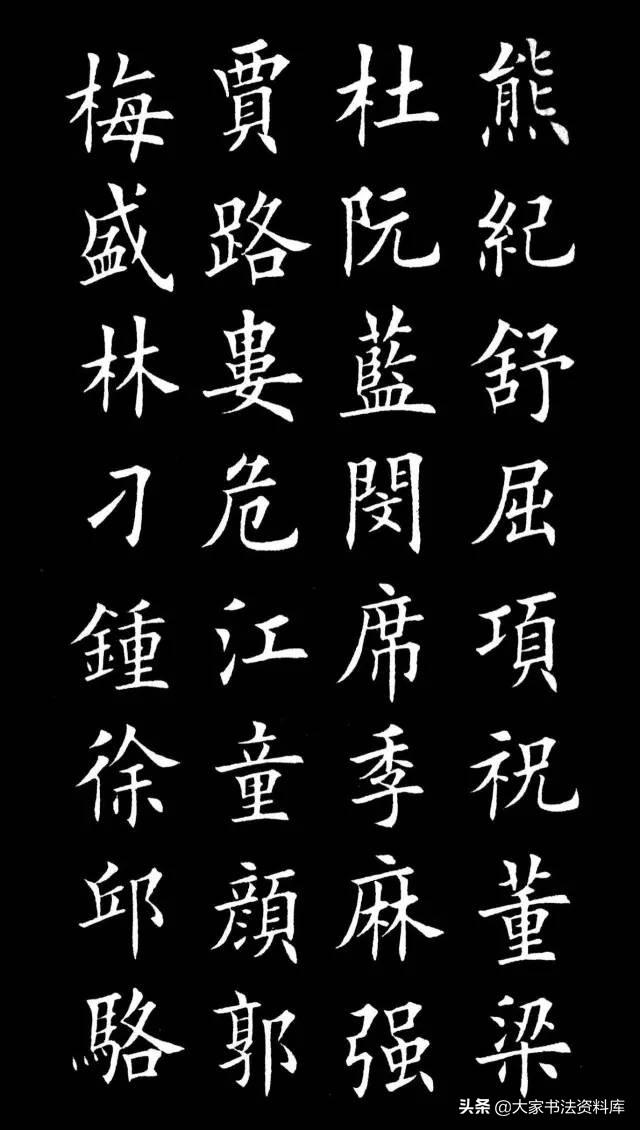 熊紀舒屈項祝董梁
杜阮藍閔席季麻强
賈路婁危江童顔郭
梅盛林刁鍾徐邱駱
头条 @大家书法资料库